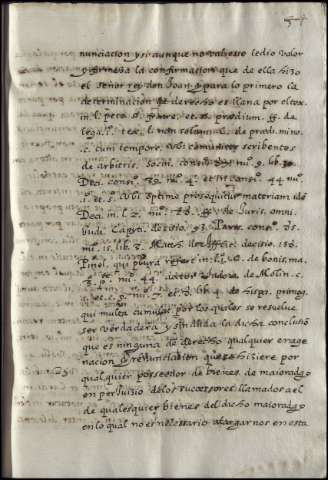 nunciacion y si aunque no valiesse le dio valor
y firmeza la confirmacion que de ella hizo
el señor rey don Joan para lo primero la
determinacion de derecho es llana por el tex.
in l. peto. §. fratre. et. §. prædium. ff. de
lega. 2. tex. l. non solum. de prædi. mino.
c. cum tempore. ubi scribentes
de arbitris. Socin. consi. nu. 9. lib.
Deci. consi. 32. nu. 4. et consi. 44 nu.
1. et. 5. ubi optime prosequitur materiam idē
Deci. in l. 2. nu. 28. ff. de Juris. omni.
iudi. decisio. 93. Paris. consi.
nu. 15. lib. 2. Math. de Afflict. decisio. 186.
Pinel. qui plura refert in l. de bonis ma.
3. p. nu. 44. Molin.
et. c. 9. nu. 7. et. lib. 4. de Hispa. primog.
qui multa cumulat por los quales se resuelve
ser verdadera y sin dubda la dicha conclusiō
que es ninguna de derecho qualquier enage
nacion o renunciacion que se hiziere por
qualquier posseedor de bienes de maioradgo
en perjuizio de los successores llamados a el
de qualesquier bienes del dicho maioradgo
en lo qual no es necessario alargarnos en esta